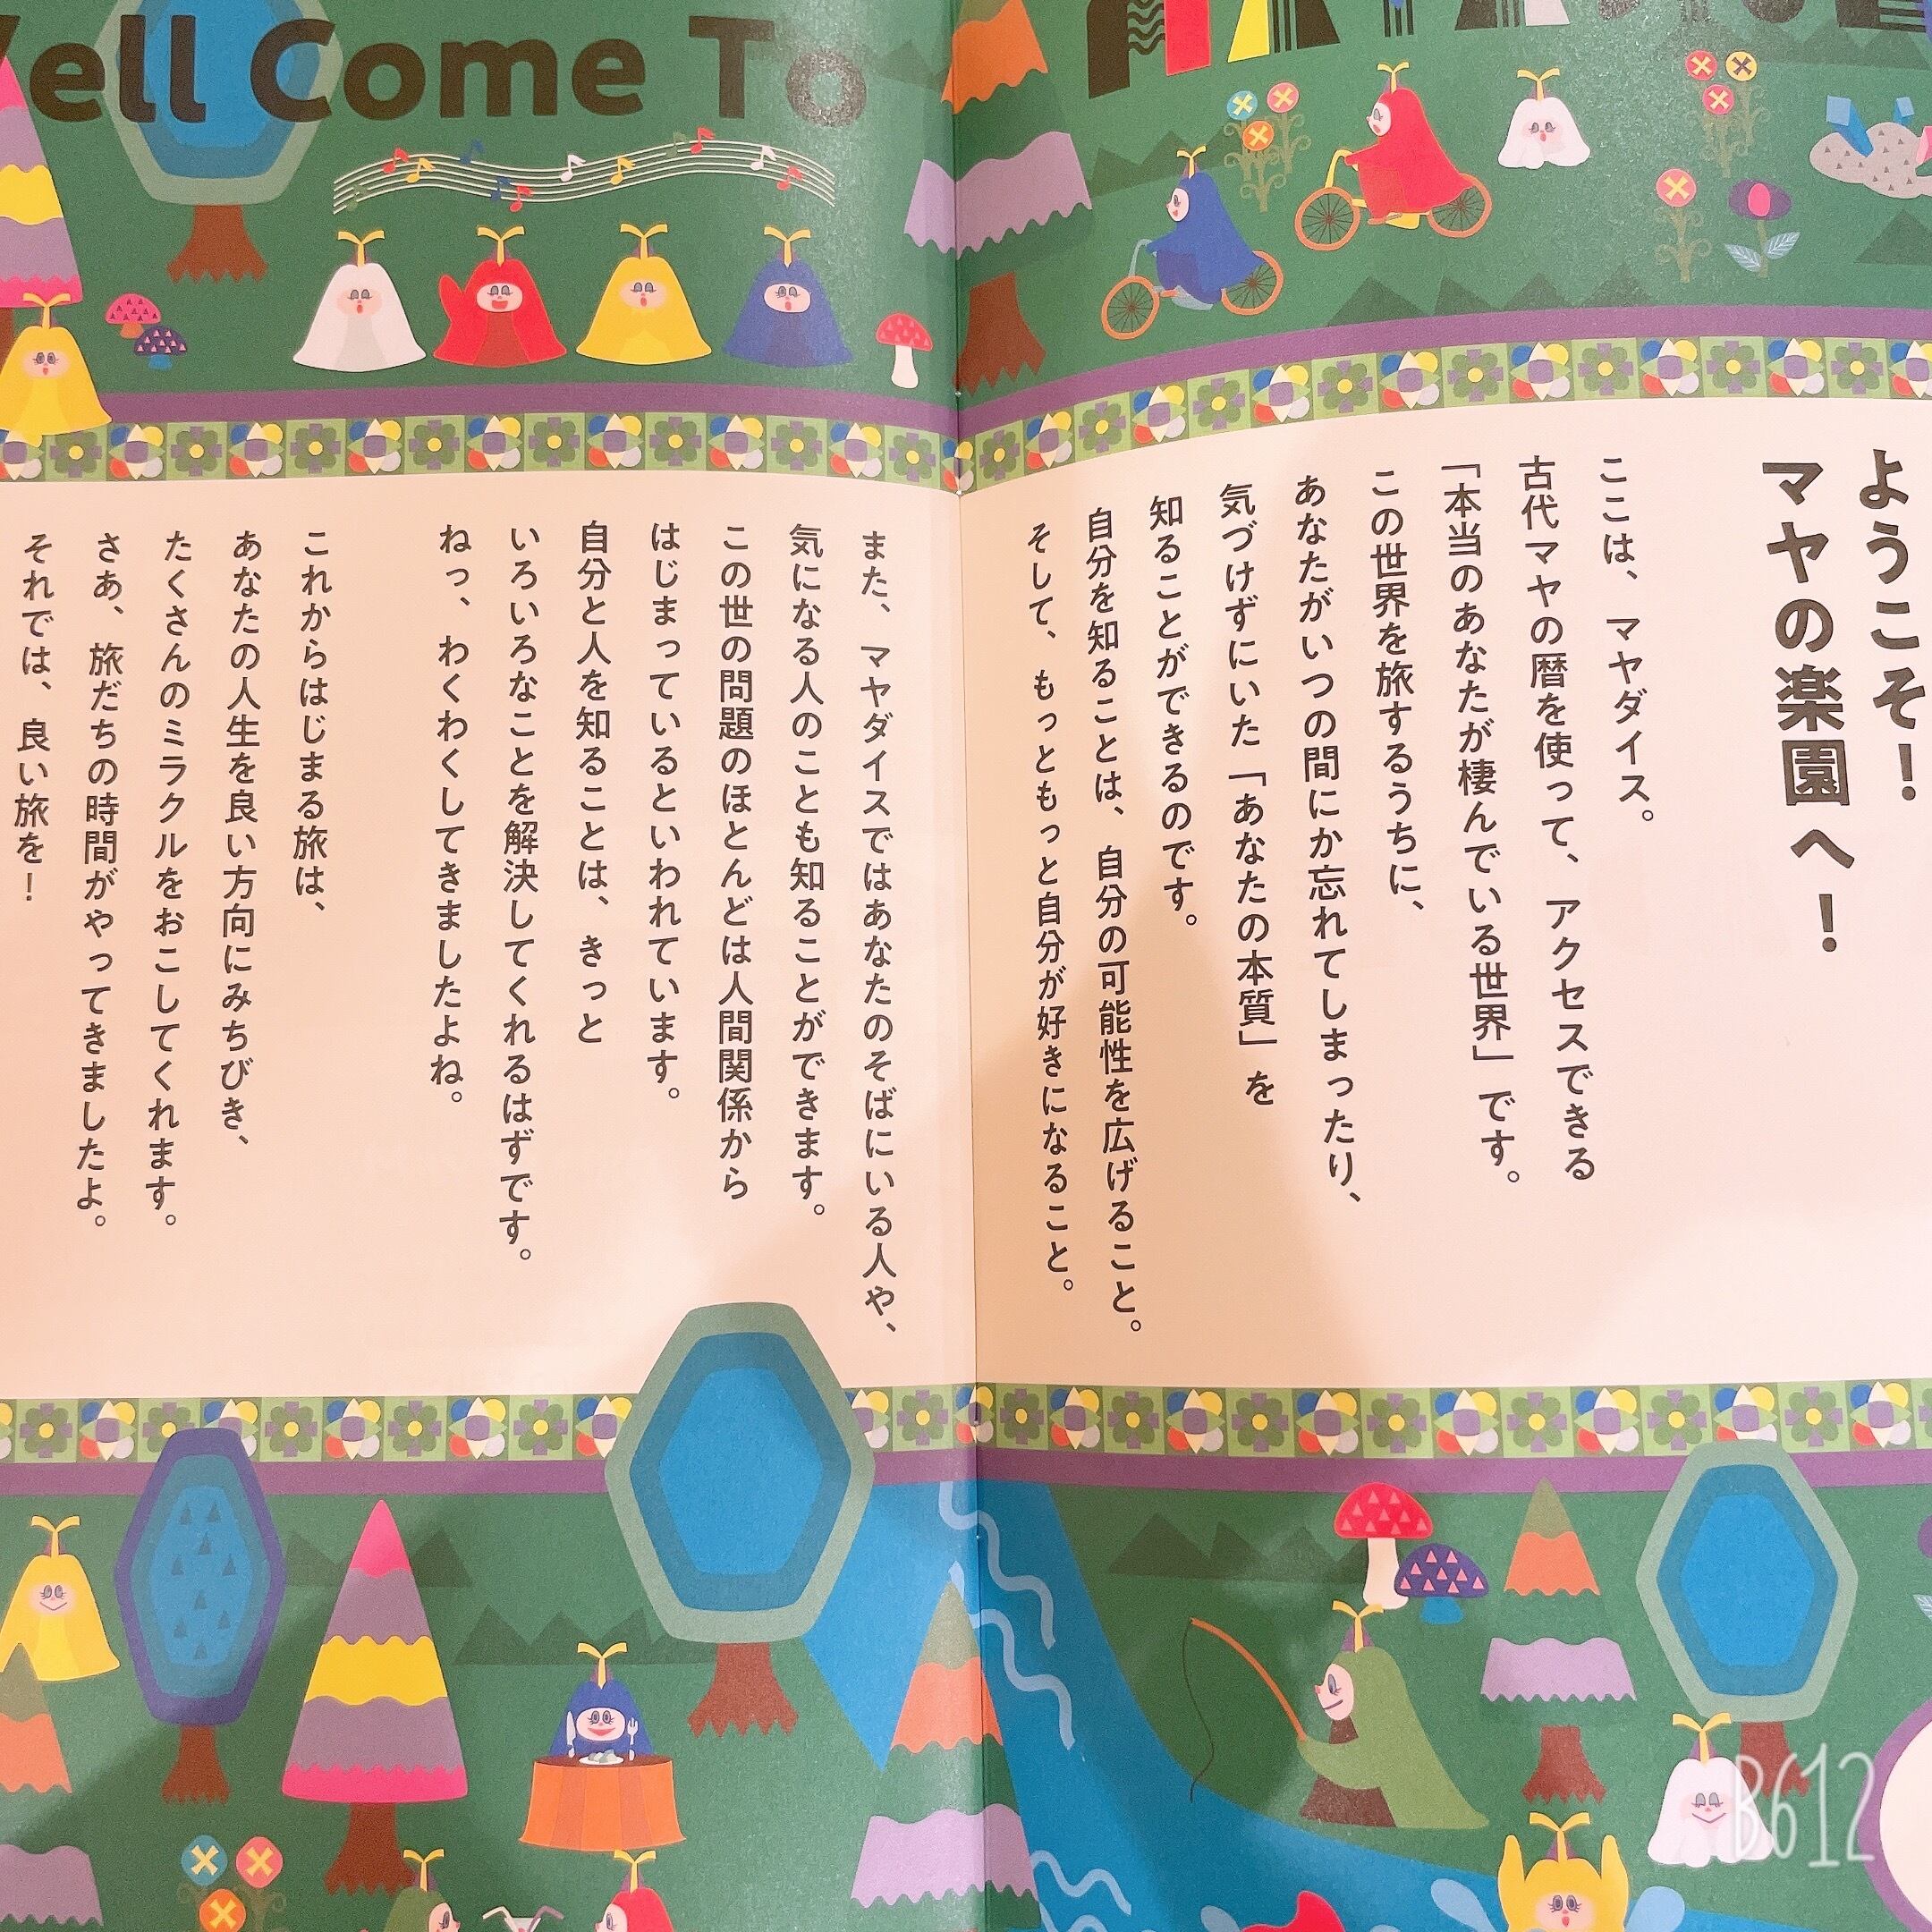 ell Come To
ようこそ！
マヤの楽園へ！
ここは、マヤダイス。
古代マヤの暦を使って、アクセスできる
「本当のあなたが棲んでいる世界」です。
この世界を旅するうちに、
あなたがいつの間にか忘れてしまったり、
気づけずにいた「あなたの本質」を
知ることができるのです。
自分を知ることは、自分の可能性を広げること。
そして、もっともっと自分が好きになること。
また、マヤダイスではあなたのそばにいる人や、
気になる人のことも知ることができます。
この世の問題のほとんどは人間関係から
はじまっているといわれています。
自分と人を知ることは、きっと
いろいろなことを解決してくれるはずです。
ねっ、わくわくしてきましたよね。
これからはじまる旅は、
あなたの人生を良い方向にみちびき、
たくさんのミラクルをおこしてくれます。
さあ、旅だちの時間がやってきましたよ。
それでは、良い旅を！
B612